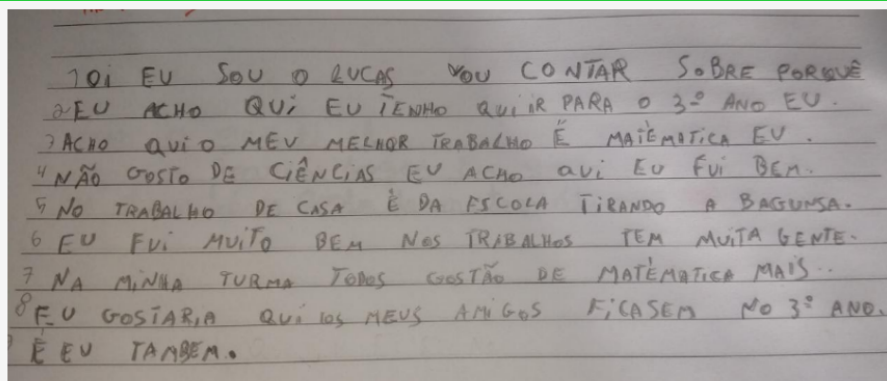 1 OI EU SOU O LUCAS VOU CONTAR SOBRE PORQUÊ
2 EU ACHO QUI EU TENHO QUI IR PARA O 3º ANO EU.
3 ACHO QUI O MEU MELHOR TRABALHO É MATÉMATICA EU.
4 NÃO GOSTO DE CIÊNCIAS EU ACHO QUI EU FUI BEM.
5 NO TRABALHO DE CASA É DA ESCOLA TIRANDO A BAGUNSA.
6 EU FUI MUITO BEM NOS TRABALHOS TEM MUITA GENTE.
7 NA MINHA TURMA TODOS GOSTÃO DE MATÉMATICA MAIS..
8 EU GOSTARIA QUI IOS MEUS AMIGOS FICASEM NO 3º ANO.
É EU TAMBEM.